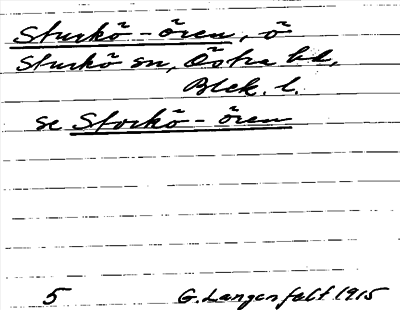 Sturkö-ören, ö
Sturkö sn, Östra hd,
Blek. l.
se Storkö-ören
5 G. Langenfelt 1915